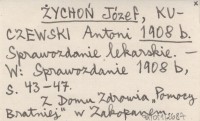 ŻYCHOŃ Józef, KU-
CZEWSKI Antoni 1908 b.
Sprawozdanie lekarskie. —
W: Sprawozdanie 1908 b,
s. 43-47.
Z Domu Zdrowia „Pomocy
Bratniej" w Zakopanem.